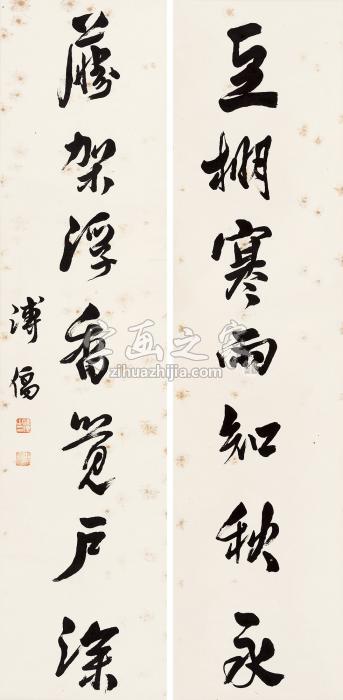 豆棚寒雨知秋永
藤架浮香覺户深
溥
字画之家
zihuazhijia.com